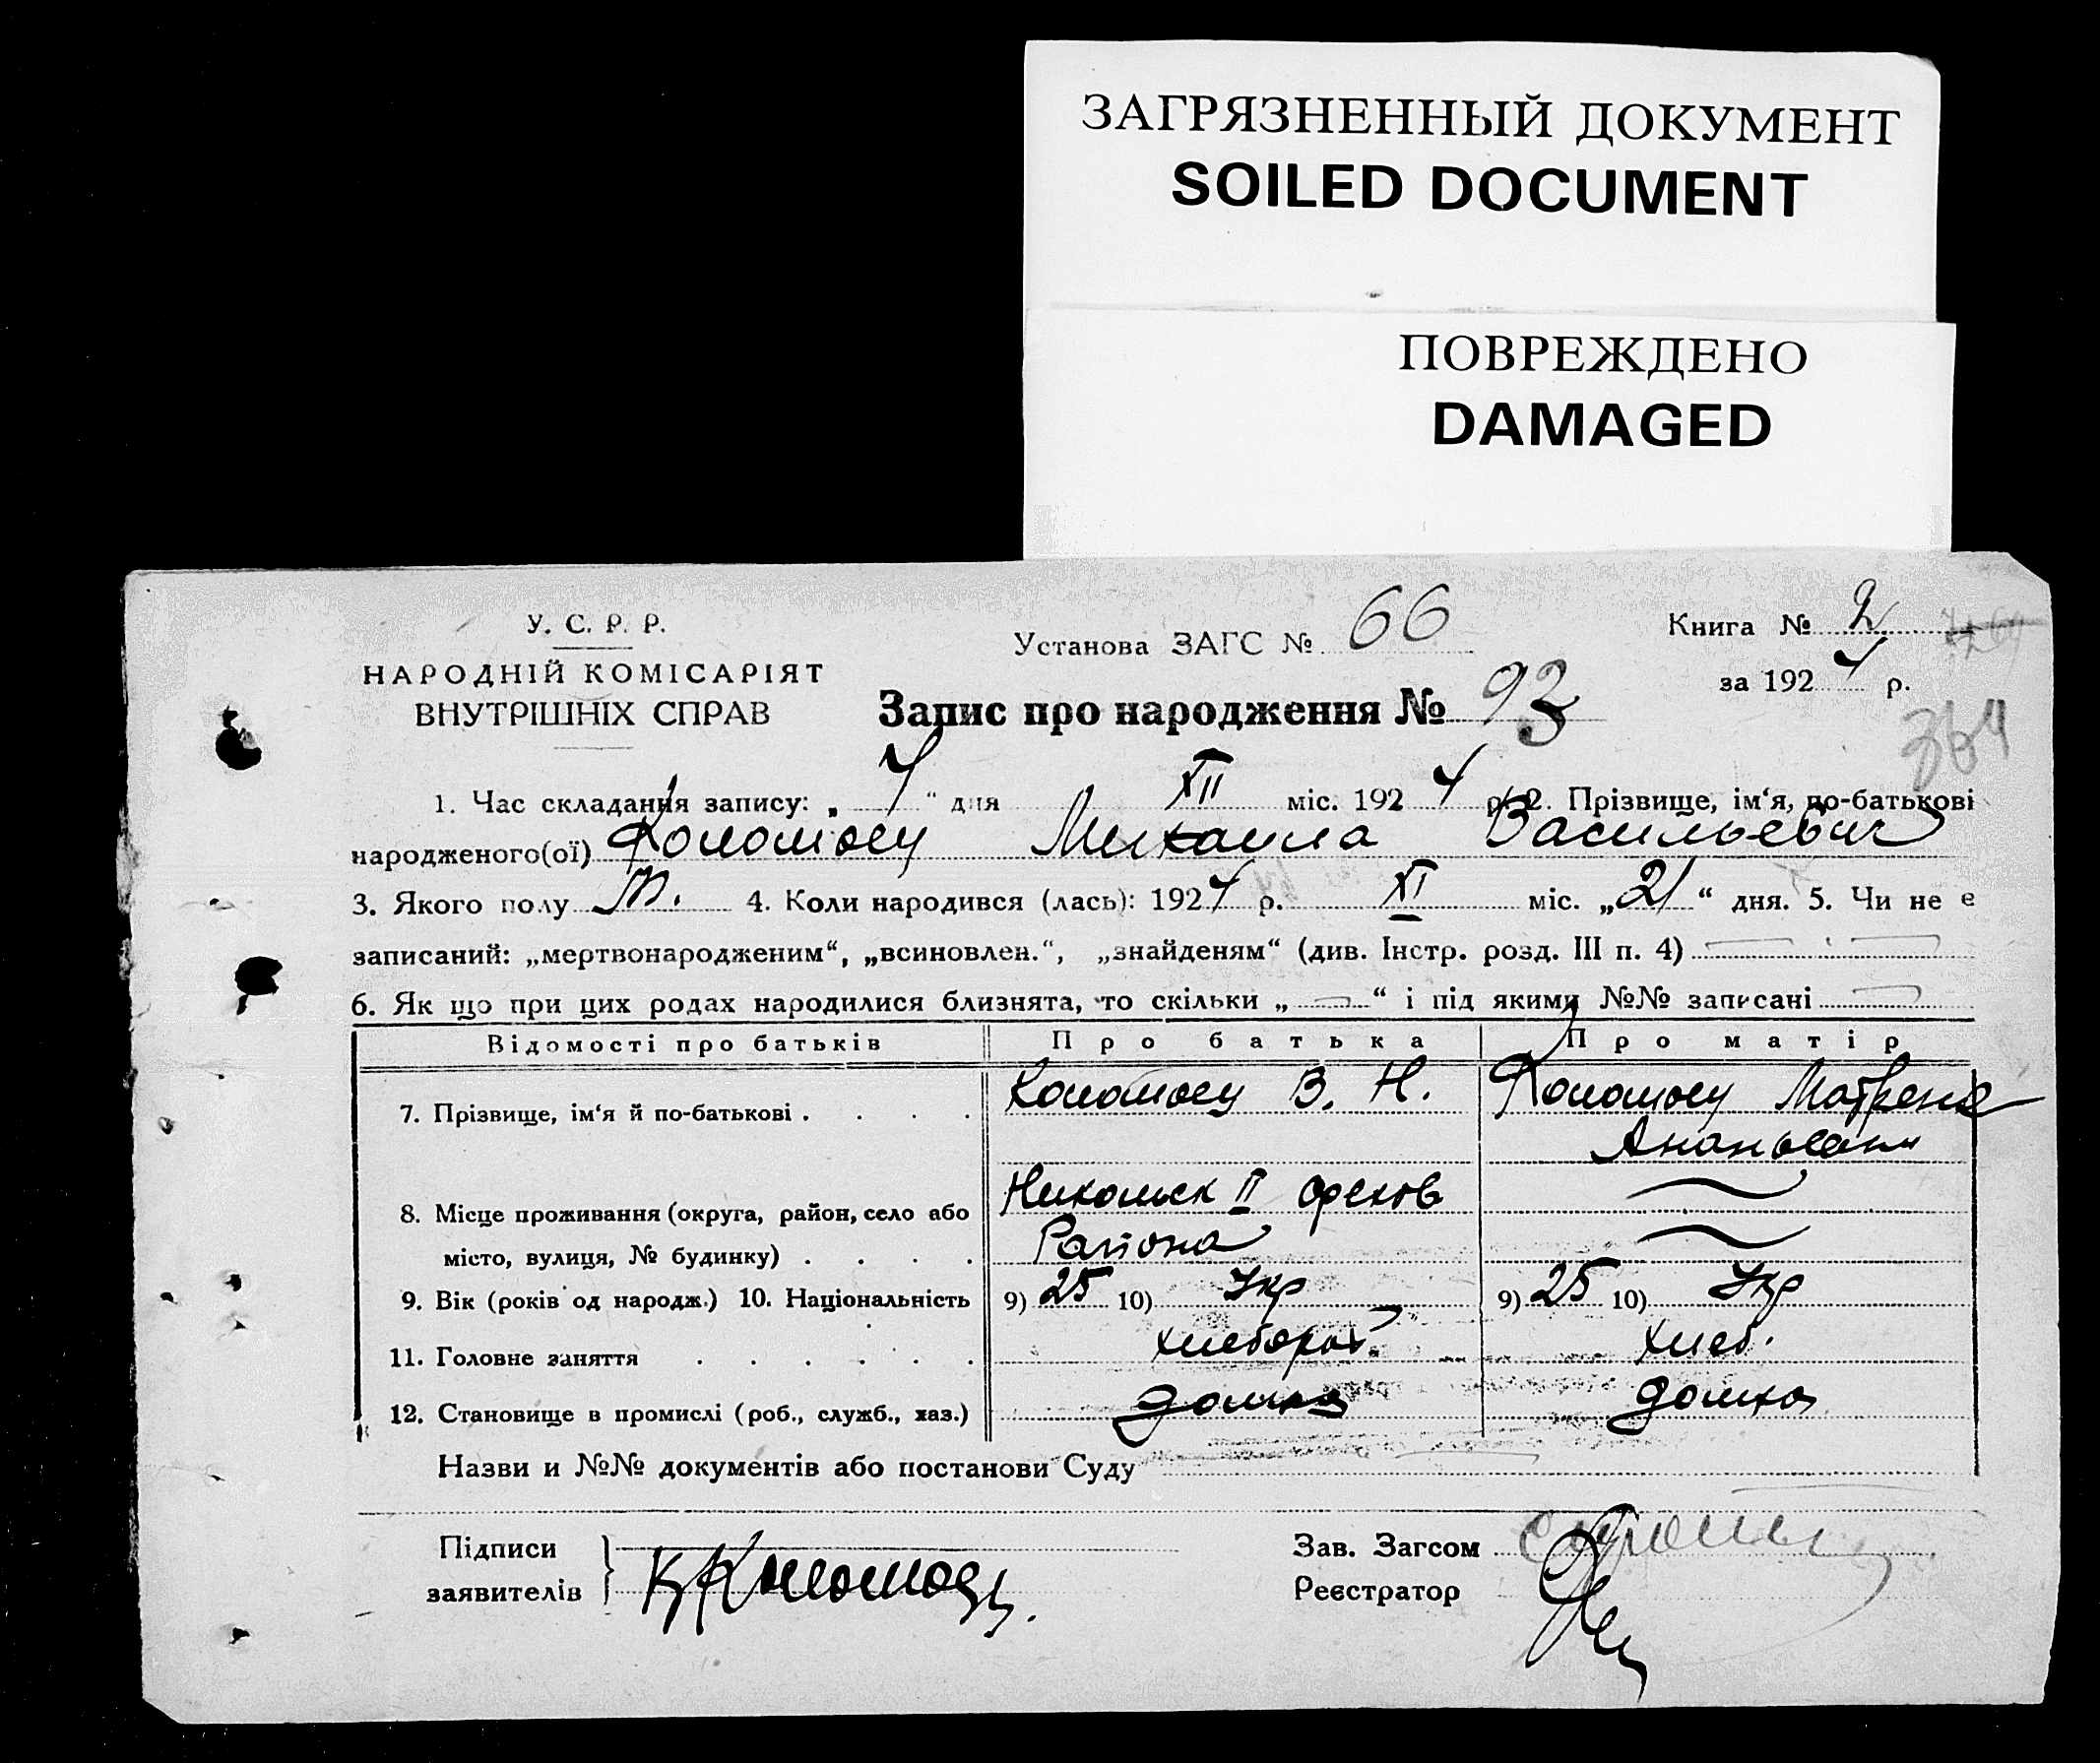 ЗАГРЯЗНЕННЫЙ ДОКУМЕНТ
SOILED DOCUMENT
ПОВРЕЖДЕНО
DAMAGED
У. С. Р. Р.
НАРОДНІЙ КОМІСАРІЯТ
ВНУТРІШНІХ СПРАВ
Установа ЗАГС № 66
Книга № 2
за 1924 р.
Запис про народження № 93
364
1. Час складання запису: „ 7 “ дня XII міс. 1924 р. 2. Прізвище, ім‘я, по-батькові
народженого(ої) Коломоец Михаила Васильевич
3. Якого полу м. 4. Коли народився (лась): 1924 р. XI міс. „21“ дня. 5. Чи не є
записаний: „мертвонародженим“, „всиновлен.“, „знайденям“ (див. Інстр. розд. III п. 4)
6. Як що при цих родах народилися близнята, то скільки „ — “ і під якими №№ записані —
Відомості про батьків Про батька Про матір
7. Прізвище, ім‘я й по-батькові . . . . Коломоец В. Н. Коломоец Матрена
Ананьевна
8. Місце проживання (округа, район, село або Никольск II Орехов
місто, вулиця, № будинку) . . . . Района
9. Вік (років од народж.) 10. Національність 9) 25 10) Укр 9) 25 10) Укр
11. Головне заняття . . . . . . хлебороб. хлеб.
12. Становище в промислі (роб., служб., хаз.)
Назви и №№ документів або постанови Суду
Підписи
заявителів К Коломоец.
Зав. Загсом
Реєстратор